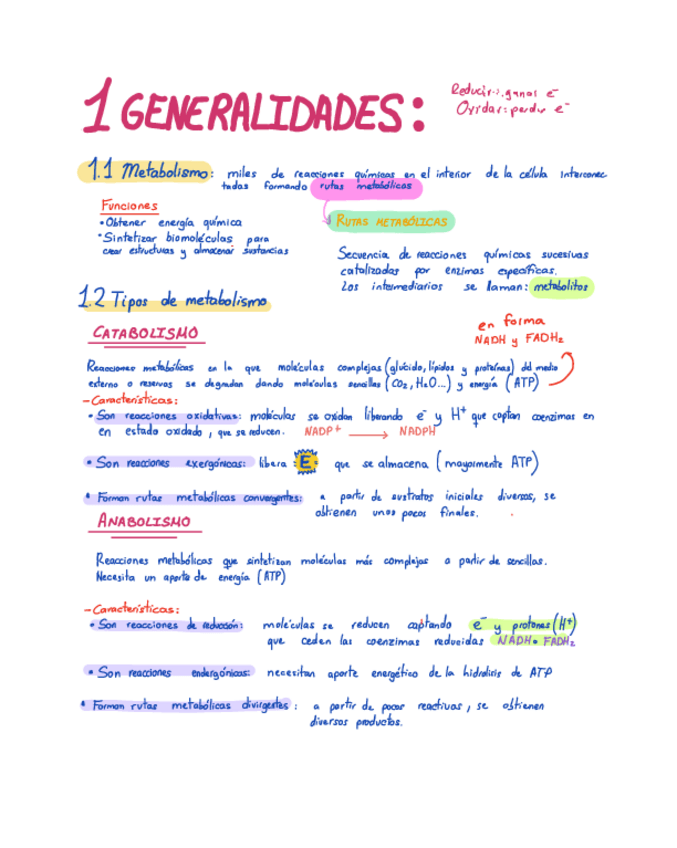 1 GENERALIDADES:
Reducir: ganas e⁻
Oxidar: perder e⁻
1.1 Metabolismo: miles de reacciones químicas en el interior de la célula interconec
tadas formando rutas metabólicas
Funciones
• Obtener energía química
• Sintetizar biomoléculas para
crear estructuras y almacenar sustancias
RUTAS METABÓLICAS
Secuencia de reacciones químicas sucesivas
catalizadas por enzimas específicas.
Los intermediarios se llaman: metabolitos
1.2 Tipos de metabolismo
CATABOLISMO
en forma
NADH y FADH₂
Reacciones metabólicas en la que moléculas complejas (glúcido, lípidos y proteínas) del medio
externo o reservas se degradan dando moléculas sencillas (CO₂, H₂O...) y energía (ATP)
- Características:
• Son reacciones oxidativas: moléculas se oxidan liberando e⁻ y H⁺ que captan coenzimas en
en estado oxidado, que se reducen. NADP⁺ → NADPH
• Son reacciones exergónicas: libera E que se almacena (mayormente ATP)
• Forman rutas metabólicas convergentes: a partir de sustratos iniciales diversos, se
obtienen unos pocos finales.
ANABOLISMO
Reacciones metabólicas que sintetizan moléculas más complejas a partir de sencillas.
Necesita un aporte de energía (ATP)
- Características:
• Son reacciones de reducción: moléculas se reducen captando e⁻ y protones (H⁺)
que ceden las coenzimas reducidas NADH o FADH₂
• Son reacciones endergónicas: necesitan aporte energético de la hidrólisis de ATP
• Forman rutas metabólicas divergentes: a partir de pocos reactivos, se obtienen
diversos productos.